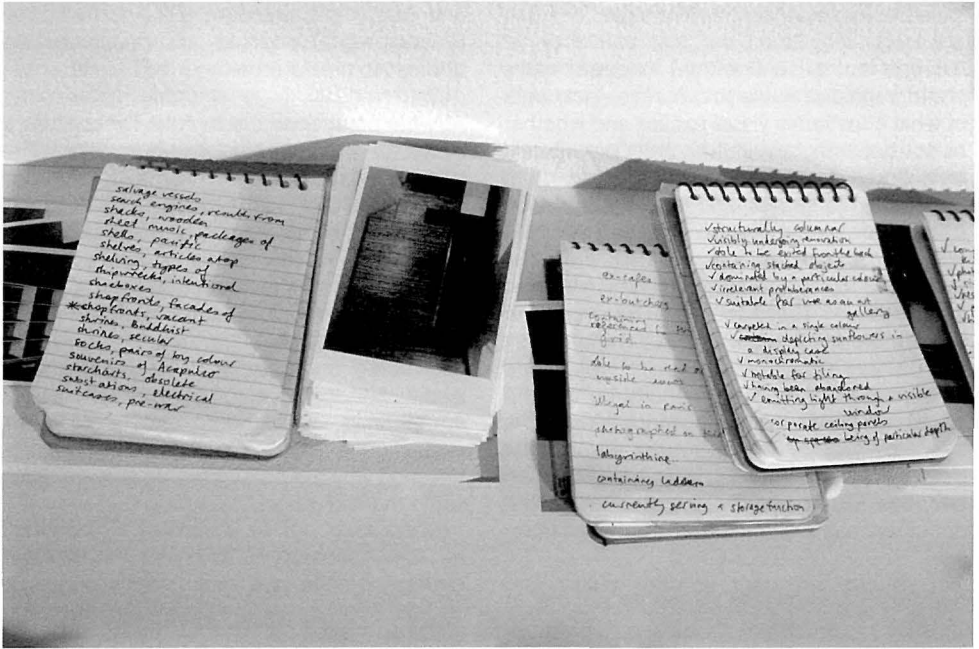 salvage vessels
search engines, results from
shacks, wooden
sheet music, packages of
shells, pacific
shelves, articles atop
shelving, types of
shipwrecks, intentional
shoeboxes
shopfronts, facades of
*shopfronts, vacant
shrines, Buddhist
shrines, secular
socks, pairs of by colour
souvenirs of Acapulco
starcharts, obsolete
substations, electrical
suitcases, pre-war
ex-cafes
ex-butchers
containing
references to the
grid
able to be read
upside
illegal in
photographed in
labyrinthine
containing ladders
currently serving a storage function
✓structurally columnar
✓visibly undergoing renovation
✓able to be exited from the back
✓containing stacked objects
✓dominated by a particular colour
✓irrelevant protuberances
✓suitable for use as an art
gallery
✓carpeted in a single colour
✓ depicting sunflowers in
a display case
✓monochromatic
✓notable for tiling
✓having been abandoned
✓emitting light through a visible
window
corporate ceiling panels
being of particular depth